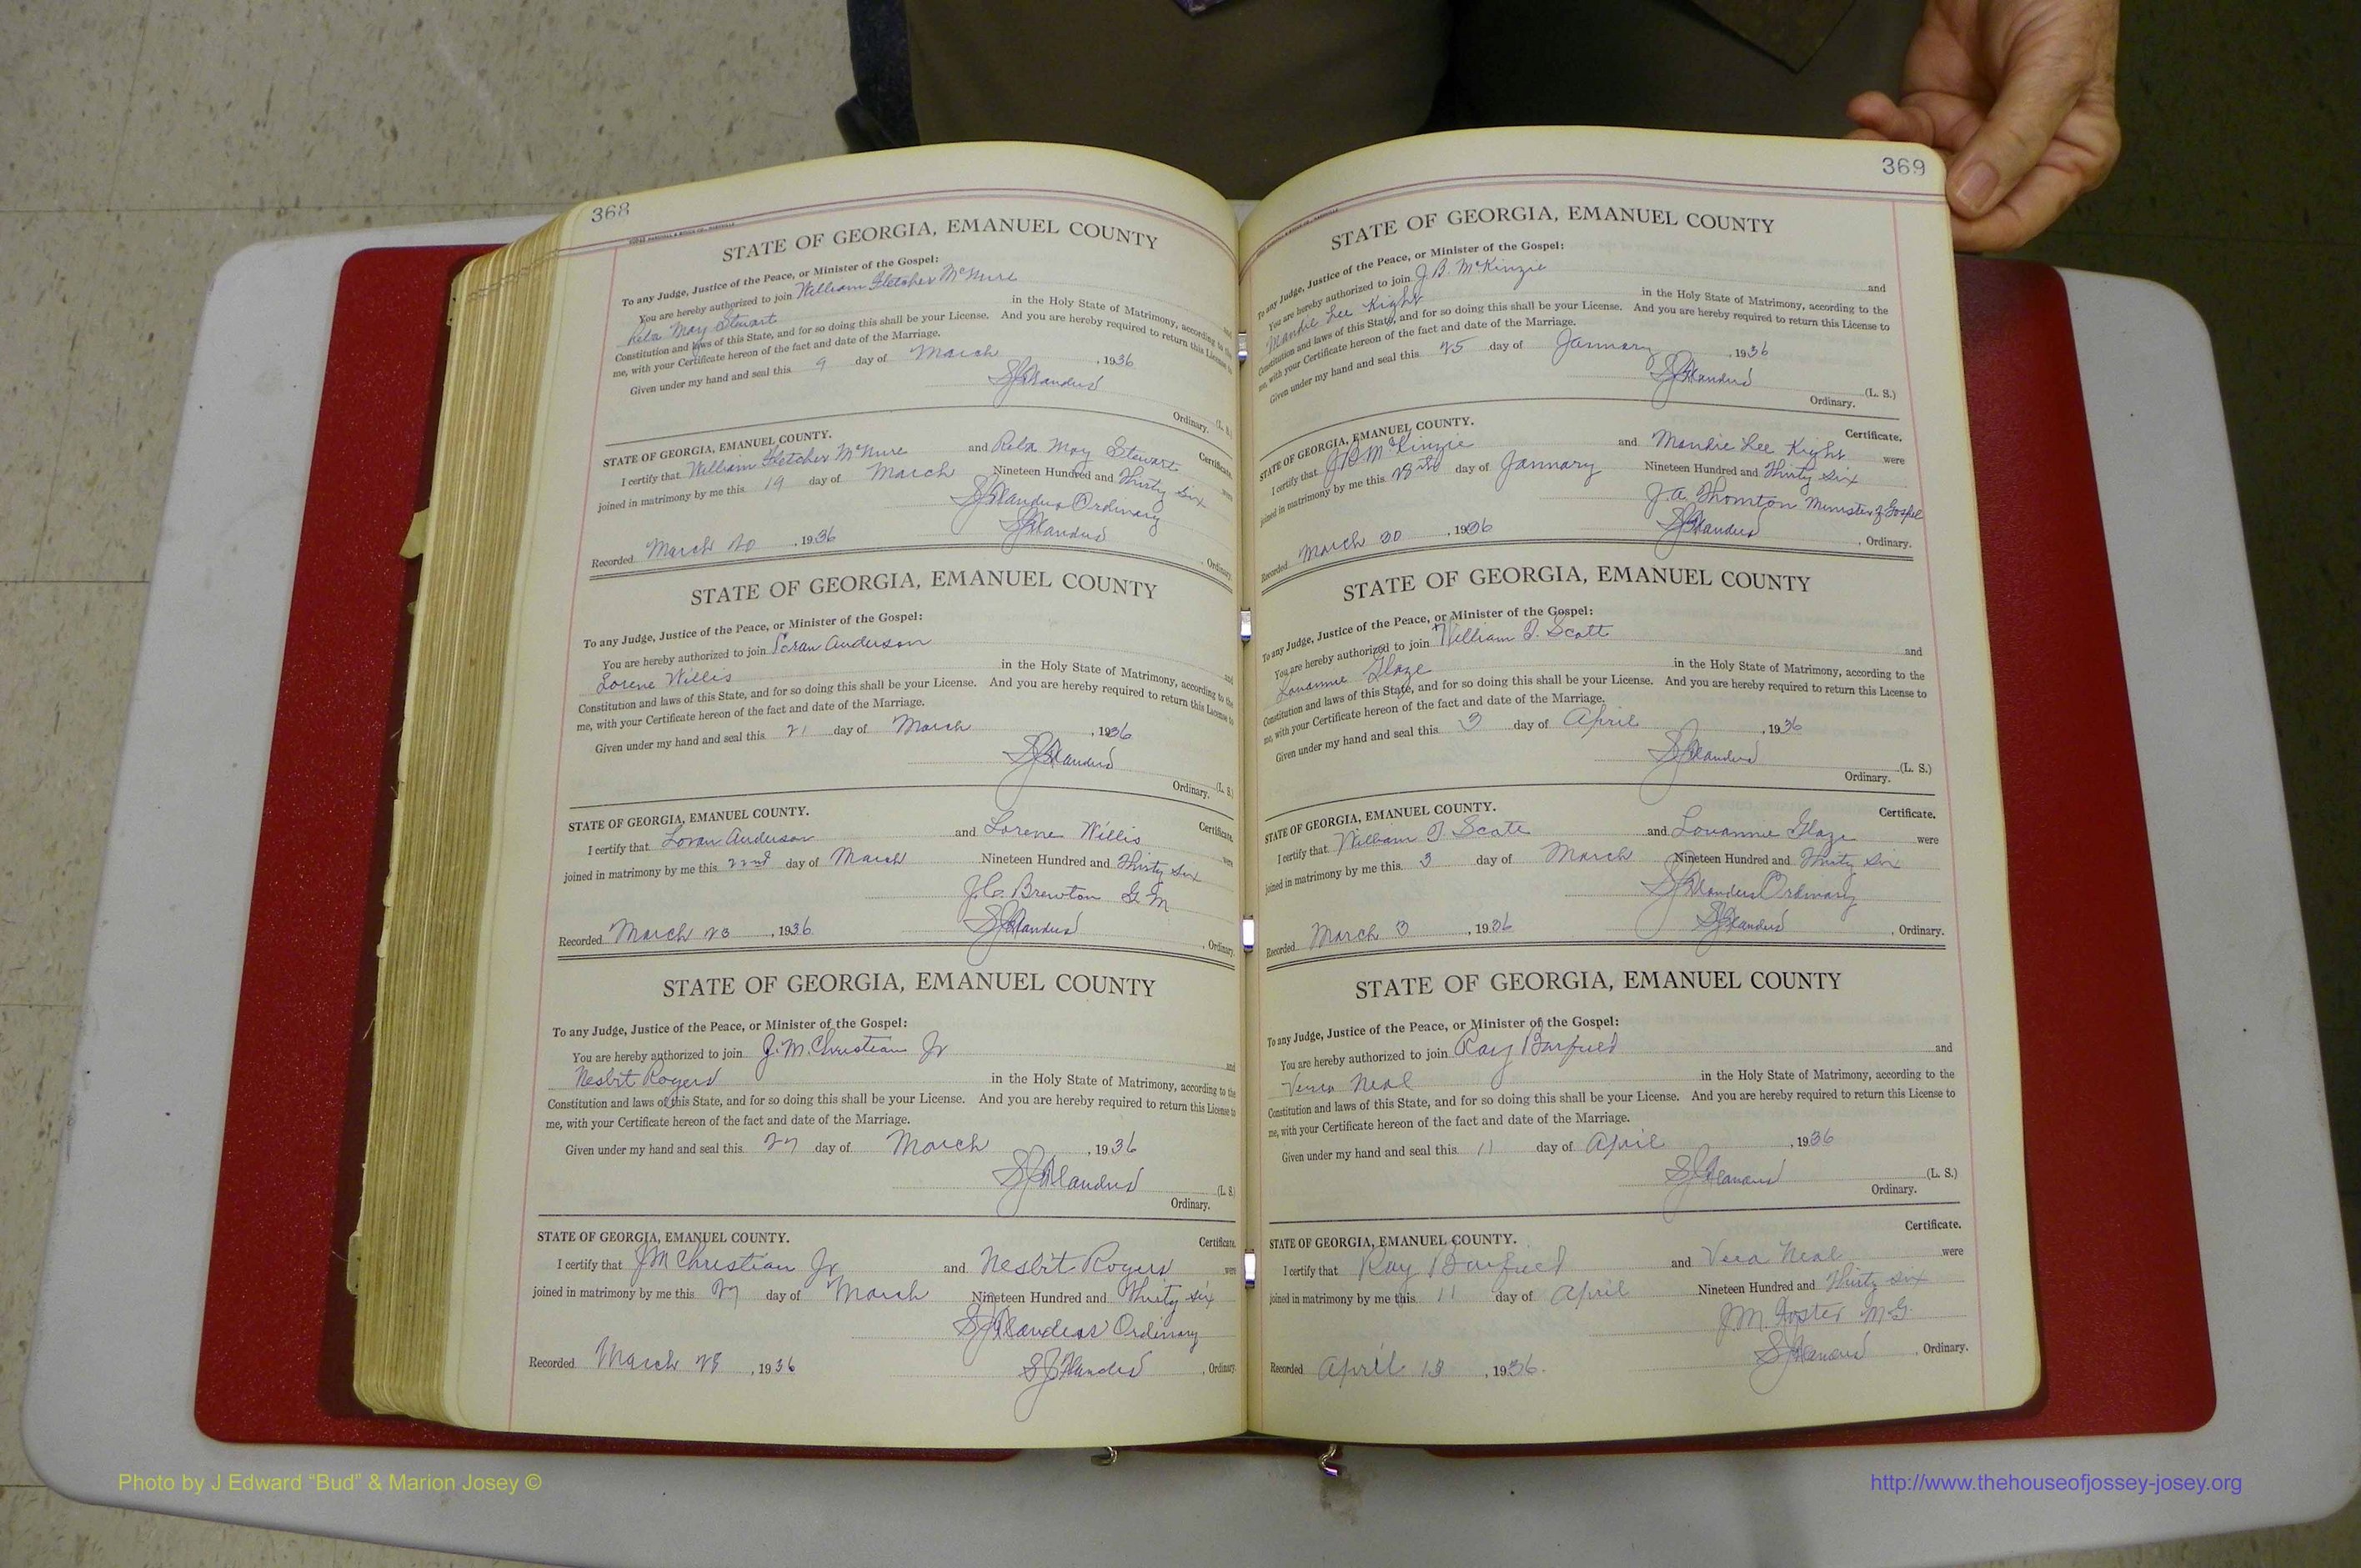 368
STATE OF GEORGIA, EMANUEL COUNTY
To any Judge, Justice of the Peace, or Minister of the Gospel:
You are hereby authorized to join William Fletcher McNure and
Reta May Stewart in the Holy State of Matrimony, according to the
Constitution and laws of this State, and for so doing this shall be your License. And you are hereby required to return this License to
me, with your Certificate hereon of the fact and date of the Marriage.
Given under my hand and seal this 9 day of March, 1936
(L. S.)
Ordinary.
STATE OF GEORGIA, EMANUEL COUNTY. Certificate.
I certify that William Fletcher McNure and Reta May Stewart were
joined in matrimony by me this 19 day of March Nineteen Hundred and Thirty Six
Ordinary
Recorded March 20, 1936, Ordinary.
STATE OF GEORGIA, EMANUEL COUNTY
To any Judge, Justice of the Peace, or Minister of the Gospel:
You are hereby authorized to join Loran Anderson and
Lorene Willis in the Holy State of Matrimony, according to the
Constitution and laws of this State, and for so doing this shall be your License. And you are hereby required to return this License to
me, with your Certificate hereon of the fact and date of the Marriage.
Given under my hand and seal this 21 day of March, 1936
(L. S.)
Ordinary.
STATE OF GEORGIA, EMANUEL COUNTY. Certificate.
I certify that Loran Anderson and Lorene Willis were
joined in matrimony by me this 22nd day of March Nineteen Hundred and Thirty Six
J.C. Brewton G M
Recorded March 23, 1936, Ordinary.
STATE OF GEORGIA, EMANUEL COUNTY
To any Judge, Justice of the Peace, or Minister of the Gospel:
You are hereby authorized to join J. M. Christian Jr and
Nesbit Rogers in the Holy State of Matrimony, according to the
Constitution and laws of this State, and for so doing this shall be your License. And you are hereby required to return this License to
me, with your Certificate hereon of the fact and date of the Marriage.
Given under my hand and seal this 27 day of March, 1936
(L. S.)
Ordinary.
STATE OF GEORGIA, EMANUEL COUNTY. Certificate.
I certify that J M Christian Jr and Nesbit Rogers were
joined in matrimony by me this 27 day of March Nineteen Hundred and Thirty six
Ordinary
Recorded March 28, 1936, Ordinary.
369
STATE OF GEORGIA, EMANUEL COUNTY
To any Judge, Justice of the Peace, or Minister of the Gospel:
You are hereby authorized to join J. B. McKinzie and
Mandie Lee Kight in the Holy State of Matrimony, according to the
Constitution and laws of this State, and for so doing this shall be your License. And you are hereby required to return this License to
me, with your Certificate hereon of the fact and date of the Marriage.
Given under my hand and seal this 25 day of January, 1936
(L. S.)
Ordinary.
STATE OF GEORGIA, EMANUEL COUNTY. Certificate.
I certify that J B McKinzie and Mandie Lee Kight were
joined in matrimony by me this day of January Nineteen Hundred and Thirty Six
J. A. Thornton Minister of Gospel
Recorded March 30, 1936, Ordinary.
STATE OF GEORGIA, EMANUEL COUNTY
To any Judge, Justice of the Peace, or Minister of the Gospel:
You are hereby authorized to join William T. Scott and
Louannie Glaze in the Holy State of Matrimony, according to the
Constitution and laws of this State, and for so doing this shall be your License. And you are hereby required to return this License to
me, with your Certificate hereon of the fact and date of the Marriage.
Given under my hand and seal this 3 day of April, 1936
(L. S.)
Ordinary.
STATE OF GEORGIA, EMANUEL COUNTY. Certificate.
I certify that William T. Scott and Louannie Glaze were
joined in matrimony by me this 3 day of March Nineteen Hundred and Thirty Six
Ordinary
Recorded March 3, 1936, Ordinary.
STATE OF GEORGIA, EMANUEL COUNTY
To any Judge, Justice of the Peace, or Minister of the Gospel:
You are hereby authorized to join Ray Barfield and
Vera Neal in the Holy State of Matrimony, according to the
Constitution and laws of this State, and for so doing this shall be your License. And you are hereby required to return this License to
me, with your Certificate hereon of the fact and date of the Marriage.
Given under my hand and seal this 11 day of April, 1936
(L. S.)
Ordinary.
STATE OF GEORGIA, EMANUEL COUNTY. Certificate.
I certify that Ray Barfield and Vera Neal were
joined in matrimony by me this 11 day of April Nineteen Hundred and Thirty six
J. M. Foster M G
Recorded April 13, 1936. , Ordinary.
Photo by J Edward “Bud” & Marion Josey ©
http://www.thehouseofjossey-josey.org